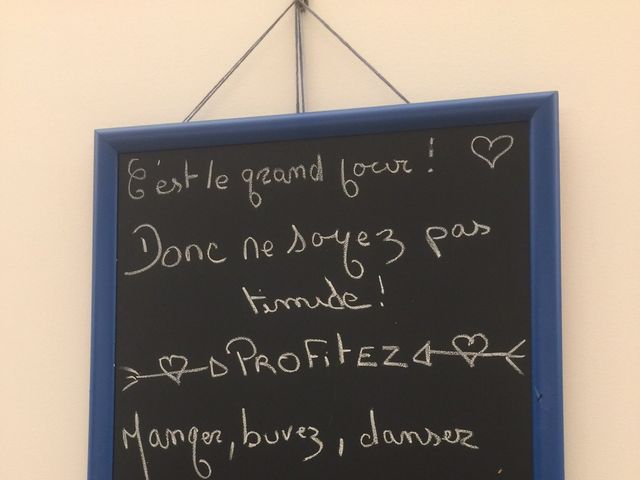 C'est le grand jour !
Donc ne soyez pas
timide !
PROFITEZ
Manger, buvez, danser